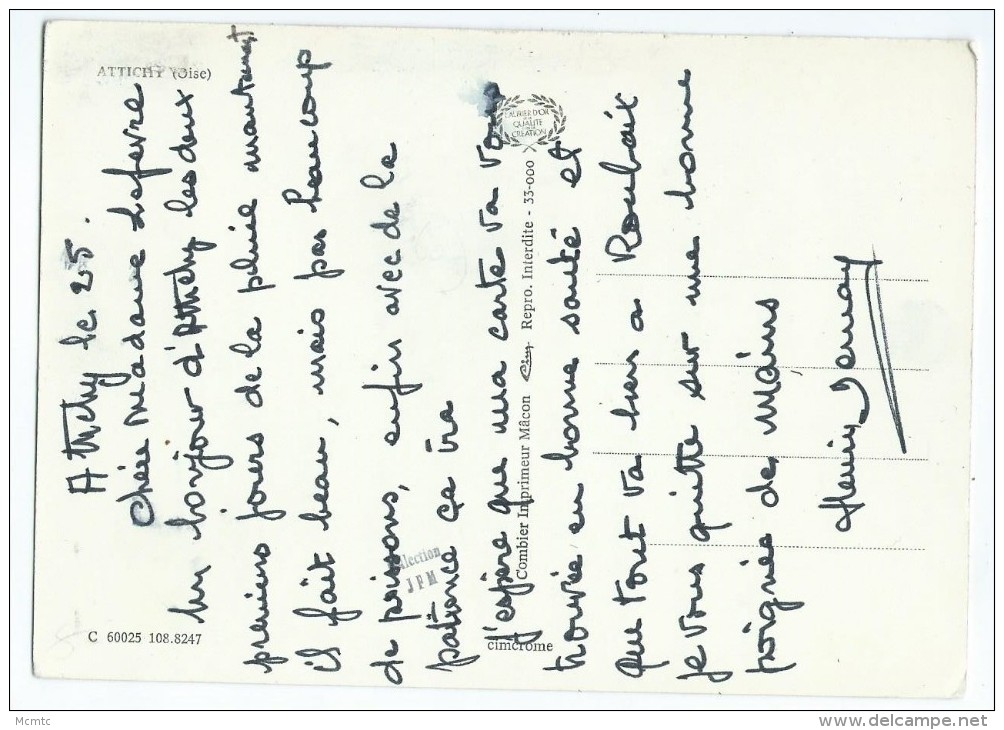 ATTICHY (Oise)
Attichy le 25.
Chère Madame Lefevre
Un bonjour d'Attichy les deux
premiers jours de la pluie maintenant
il fait beau, mais pas beaucoup
de poissons, enfin avec de la
patience ça ira
J'espère que ma carte va vous
trouvée en bonne santé et
que tout va bien a Roubaix
je vous quitte sur une bonne
poignée de mains
Henri
C 60025 108.8247
LAURIER D'OR
DE LA
QUALITÉ
CRÉATION
Combier Imprimeur Mâcon Cim Repro. Interdite - 33-000
cimcrome
Collection
JPM
Mcmtc
www.delcampe.net